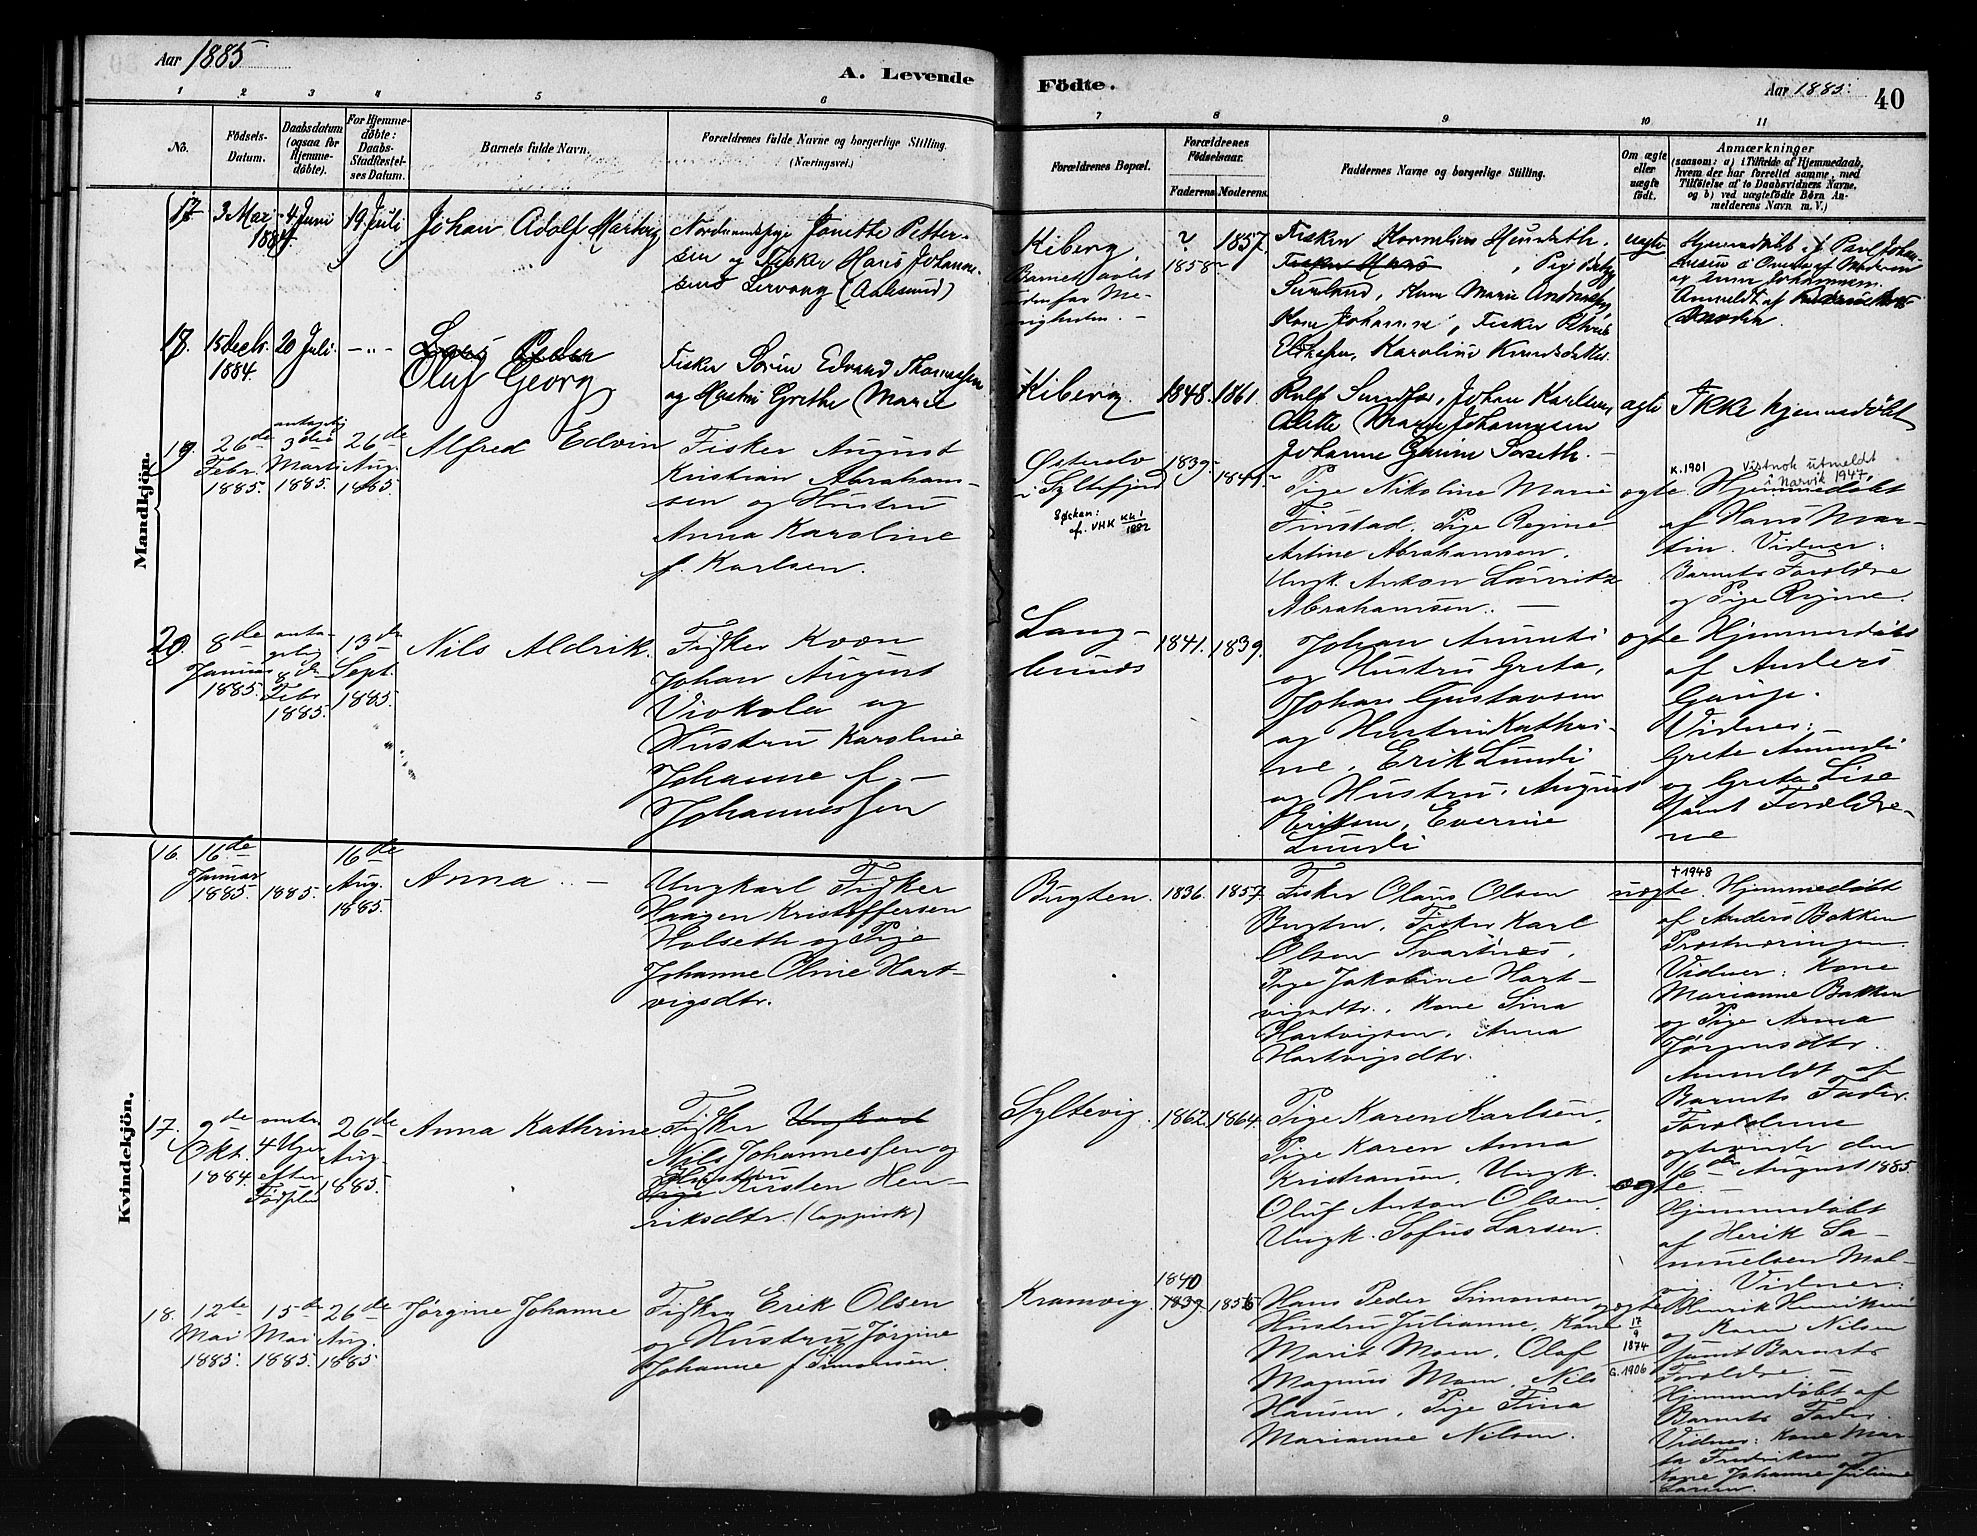 Aar 1885
A. Levende
Födte.
Aar 1885.
40
1 2 3 4 5 6 7 8 9 10 11
No.
Födsels-
Datum.
Daabsdatum
(ogsaa for
Hjemme-
döbte).
For Hjemme-
döbte:
Daabs-
Stadfæstel-
ses Datum.
Barnets fulde Navn.
Forældrenes fulde Navne og borgerlige Stilling.
(Næringsvei.)
Forældrenes Bopæl.
Forældrenes
Födselsaar.
Faderens. Moderens.
Faddernes Navne og borgerlige Stilling.
Om ægte
eller
uægte
født.
Anmærkninger
(saasom: a) i Tilfælde af Hjemmedaab,
hvem der har forrettet samme, med
Tilföielse af to Daabsvidners Navne,
og b) ved uægtefödte Börn An-
melderens Navn m. V.)
Mandkjön.
17
3 Mai
1884
4 Juni
19 Juli
Johan Adolf Hartvig
Nordmandspige Jonette Petter-
sen og Fisker Hans Johanne-
(Aalesund)
Kiberg
Barnet avlet
udenfor Me-
nigheden.
?
1858
1857.
Fisker Kornelius
Fisker Hans
Kone Johanna, Fisker
uægte
18.
15 Decb.
1884.
20 Juli.
Lars Peder
Oluf Georg
Fisker Sören Edvard Thomassen
og Hustru Grethe Marie
Kiberg
1848. 1861.
Johan Karlsen,
ægte
Ikke hjemmedöbt
19.
26de
Febr.
1885.
3die
Marts
1885.
26de
Aug.
1885.
Alfred Edvin
Fisker August
Kristian Abraham-
sen og Hustru
Anna Karoline
f. Karlsen.
Østerelv
i Syltefjord
Søsken:
1882
1839.
Pige Nikoline Marie
Finstad. Pige Regine
Artine Abrahamsen.
Ungk. Anton Lauritz
Abrahamsen.
ægte.
K. 1901 Vistnok utmeldt
i Narvik 1947.
Hjemmedöbt
af Hans Mar-
tin. Vidner:
Barnets Forældre
og Pige Regine.
20.
8de
Januar
1885.
anta-
gelig
8de
Febr.
1885.
13de
Sept.
1885.
Nils Aldrik.
Fisker Kvæn
Johan August
Viokola og
Hustru Karoline
Johanne f.
Johannessen
Lang-
bunes
1841. 1839.
Johan
og Hustru Greta,
Johan Gustavsen
og Hustru Kathri-
ne, Erik Lundi
og Hustru, August
Eriksen, Everine
Lundi
ægte
Hjemmedöbt
af Anders
Vidner:
Grete
og Greta Lise
samt Forældre-
ne
Kvindekjön.
16.
16de
Januar
1885.
1885.
16de
Aug.
1885.
Anna
Ungkarl Fisker
Haagen Kristoffersen
Holseth og Pige
Johanne Oline Hart-
vigsdtr.
Bugten.
1836. 1857.
Fisker Olaus Olsen
Bugten, Fisker Karl
Olsen Svartnes,
Pige Jakobine Hart-
vigsdtr., Kone Sina
Hartvigsen, Anna
Hartvigsdtr.
uægte.
† 1948
Hjemmedöbt
af Anders Bakken
Vidner: Kone
Marianne Bakken
og Pige Anna
Jörgensdtr.
Anmeldt af
Barnets Fader.
Forældrene
ægteviede den
16de August 1885.
17.
9de
Okt.
1884.
omtr.
4 Uger
efter
Födslen
26de
Aug.
1885.
Anna Kathrine.
Fisker Ungkarl
Nils Johannessen og
Hustru
Pige Kirsten Hen-
riksdtr. (lappisk)
Syltevig.
1862. 1864.
Pige Karen Karlsen.
Pige Karen Anna
Kristiansen, Ungk.
Oluf Anton Olsen,
Ungk. Sofus Larsen.
ægte.
Hjemmedöbt
af Henrik Sa-
muelsen
Vidner:
Henrik Henriksen
og Karen Nilsen
samt Barnets
Forældre.
18.
12te
Mai
1885.
15de
Mai
1885.
26de
Aug.
1885
Jörgine Johanne
Fisker Erik Olsen
og Hustru Jörgine
Johanne f. Simonsen.
Kramvig.
1840
1839. 1856
Hans Peder Simonsen
Hustru Julianne, Kone
Marit Moen, Olaf
Magnus Moen, Nils
Hansen, Pige Fina
Marianne Nilsen.
ægte
17
9
1874
G. 1906
Hjemmedöbt af
Barnets Fader.
Vidner: Kone Mar-
ta Fredriksen og
Kone Johanne Juliane
Larsen.